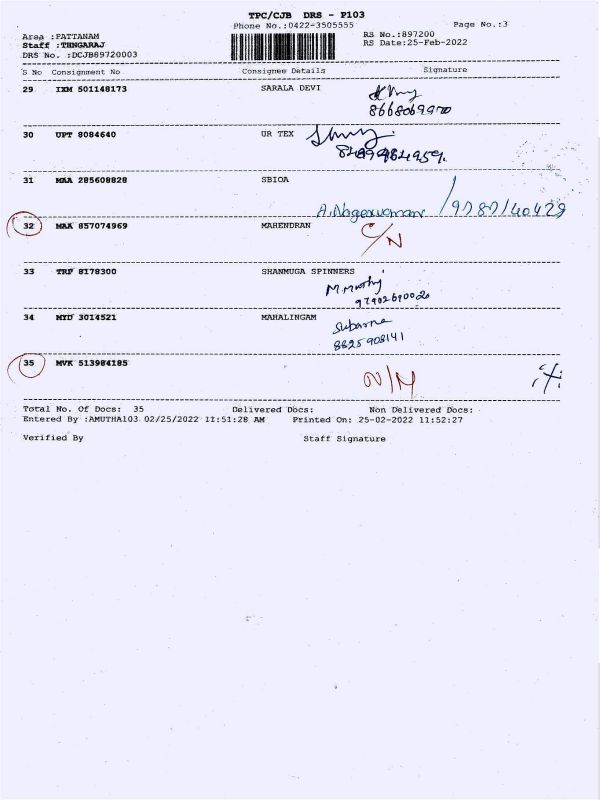 TPC/CJB DRS - P103
Phone No.:0422-3505555
Page No.:3
Area :PATTANAM
RS No.:897200
Staff :THNGARAJ
RS Date:25-Feb-2022
DRS No. :DCJB89720003
S No Consignment No Consignee Details Signature
29 IXM 501148173 SARALA DEVI
8668069970
30 UPT 8084640 UR TEX
8489984959.
31 MAA 285608828 SBIOA
A.Nageswaman /9787140429
32 MAA 857074969 MAHENDRAN
C/N
33 TRP 8178300 SHANMUGA SPINNERS
M.Murthy
9790269002
34 MYD 3014521 MAHALINGAM
Subarna
8825908141
35 MVK 513984185
N/N
Total No. Of Docs: 35 Delivered Docs: Non Delivered Docs:
Entered By :AMUTHA103 02/25/2022 11:51:28 AM Printed On: 25-02-2022 11:52:27
Verified By Staff Signature